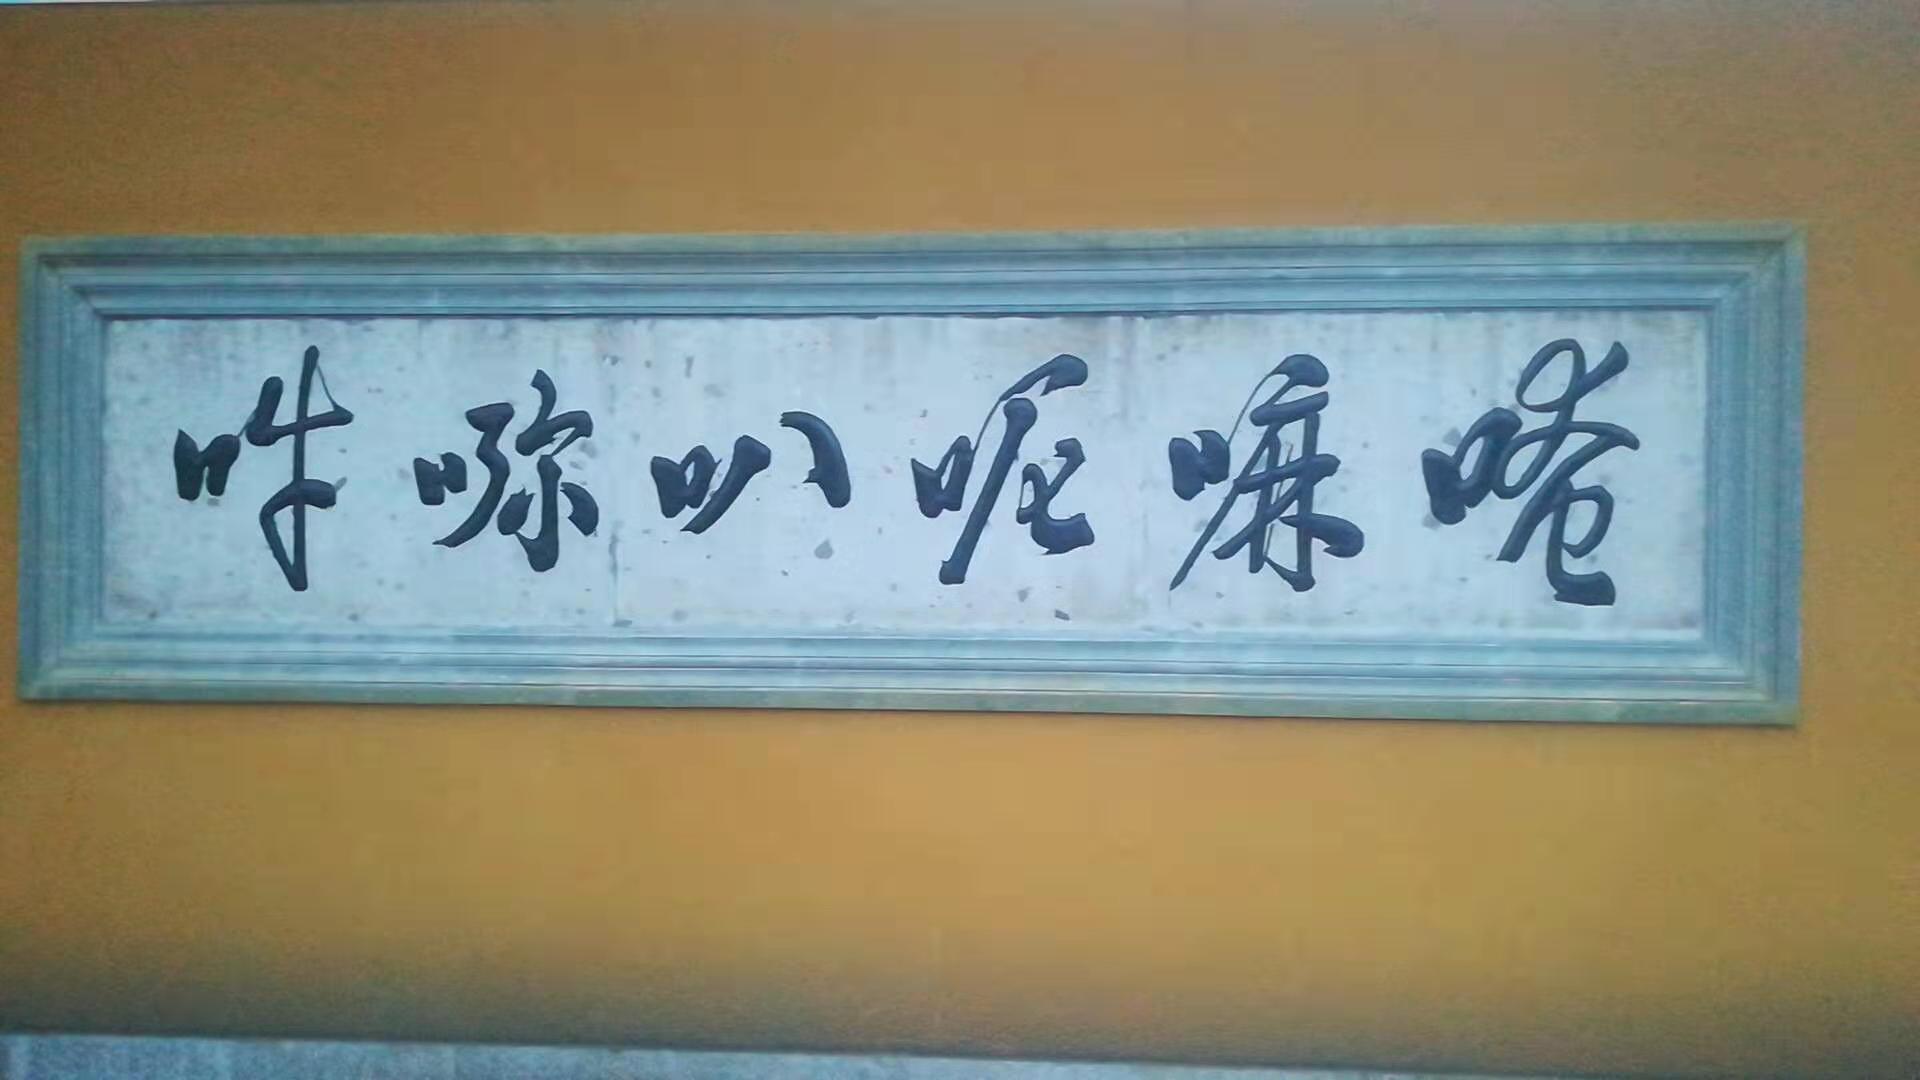 唵嘛呢叭㖿吽